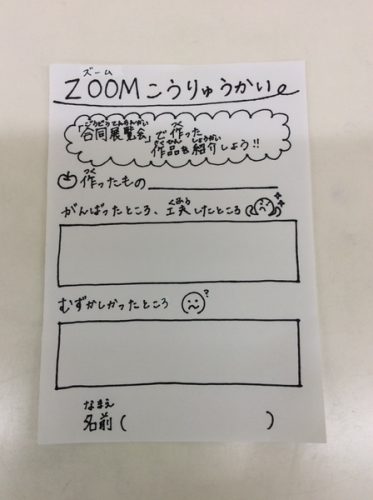 ズーム
ZOOMこうりゅうかい
ごうどうてんらんかい つく
「合同展覧会」で作った
さくひん しょうかい
作品を紹介しよう!!
つく
作ったもの
くふう
がんばったところ、工夫したところ
むずかしかったところ ?
なまえ
名前( )